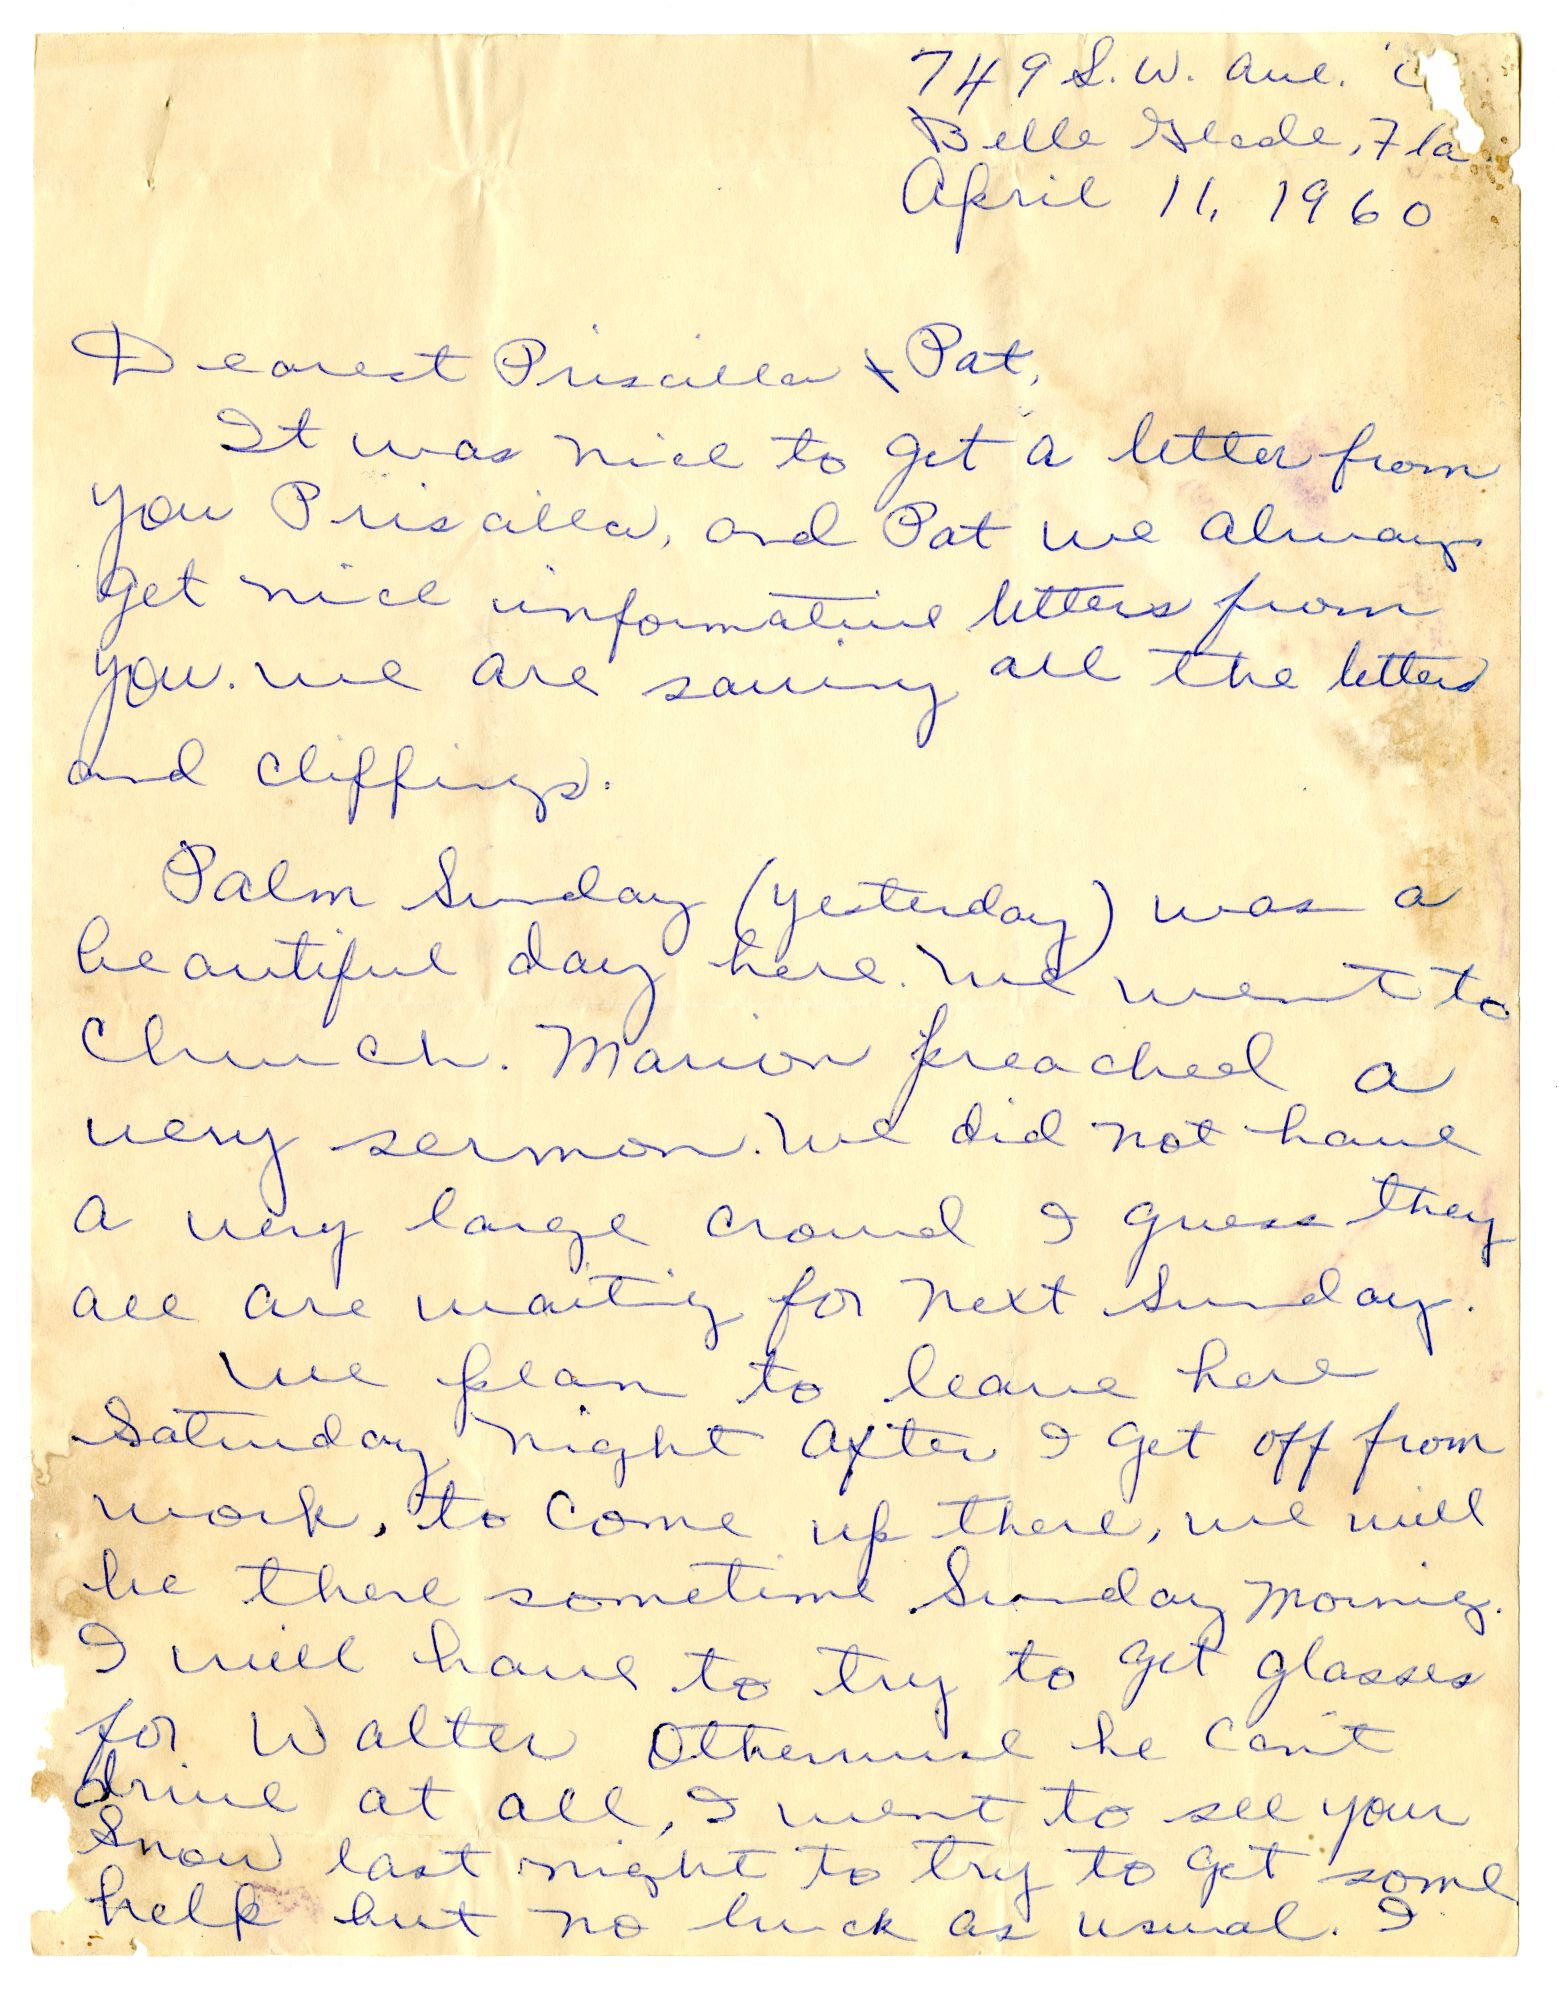 749 S. W. Ave. "C
Belle Glade, Fla.
April 11, 1960
Dearest Priscilla & Pat,
It was nice to get a letter from
you Priscilla, and Pat we always
get nice informative letters from
you. We are saving all the letters
and clippings.
Palm Sunday (yesterday) was a
beautiful day here. We went to
Church. Marion preached a
very sermon. We did not have
a very large crowd I guess they
all are waiting for next Sunday.
We plan to leave here
Saturday night after I get off from
work, to come up there, we will
be there sometime Sunday Morning.
I will have to try to get glasses
for Walter Otherwise he can't
drive at all, I went to see your
Snow last night to try to get some
help but no luck as usual. I